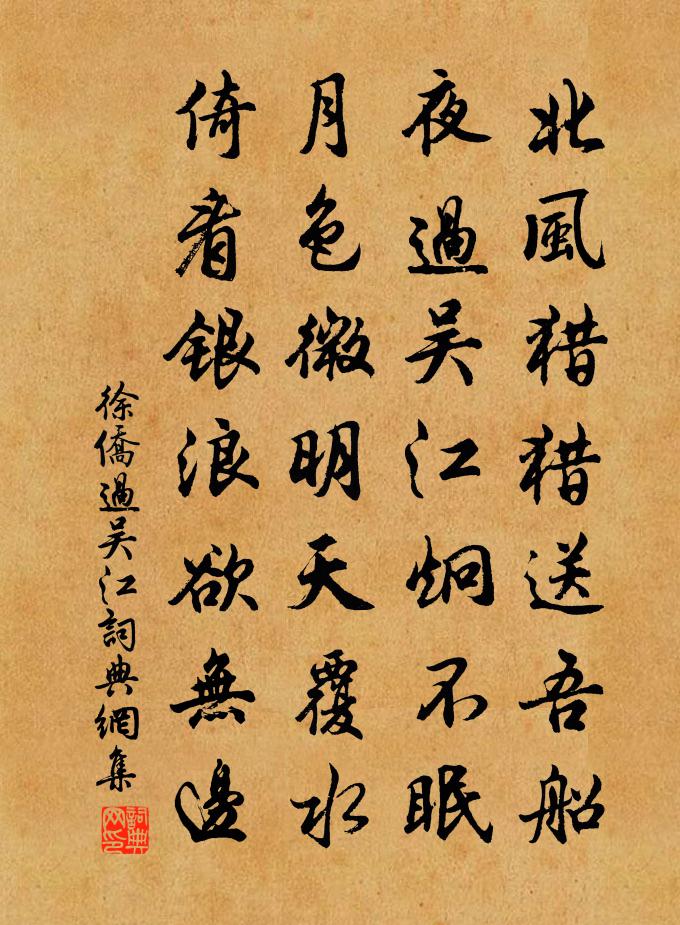 北風猎猎送吾船
夜過吴江炯不眠
月色微明天覆水
倚看銀浪欲無邊
徐僑過吴江詞典網集
詞典网印